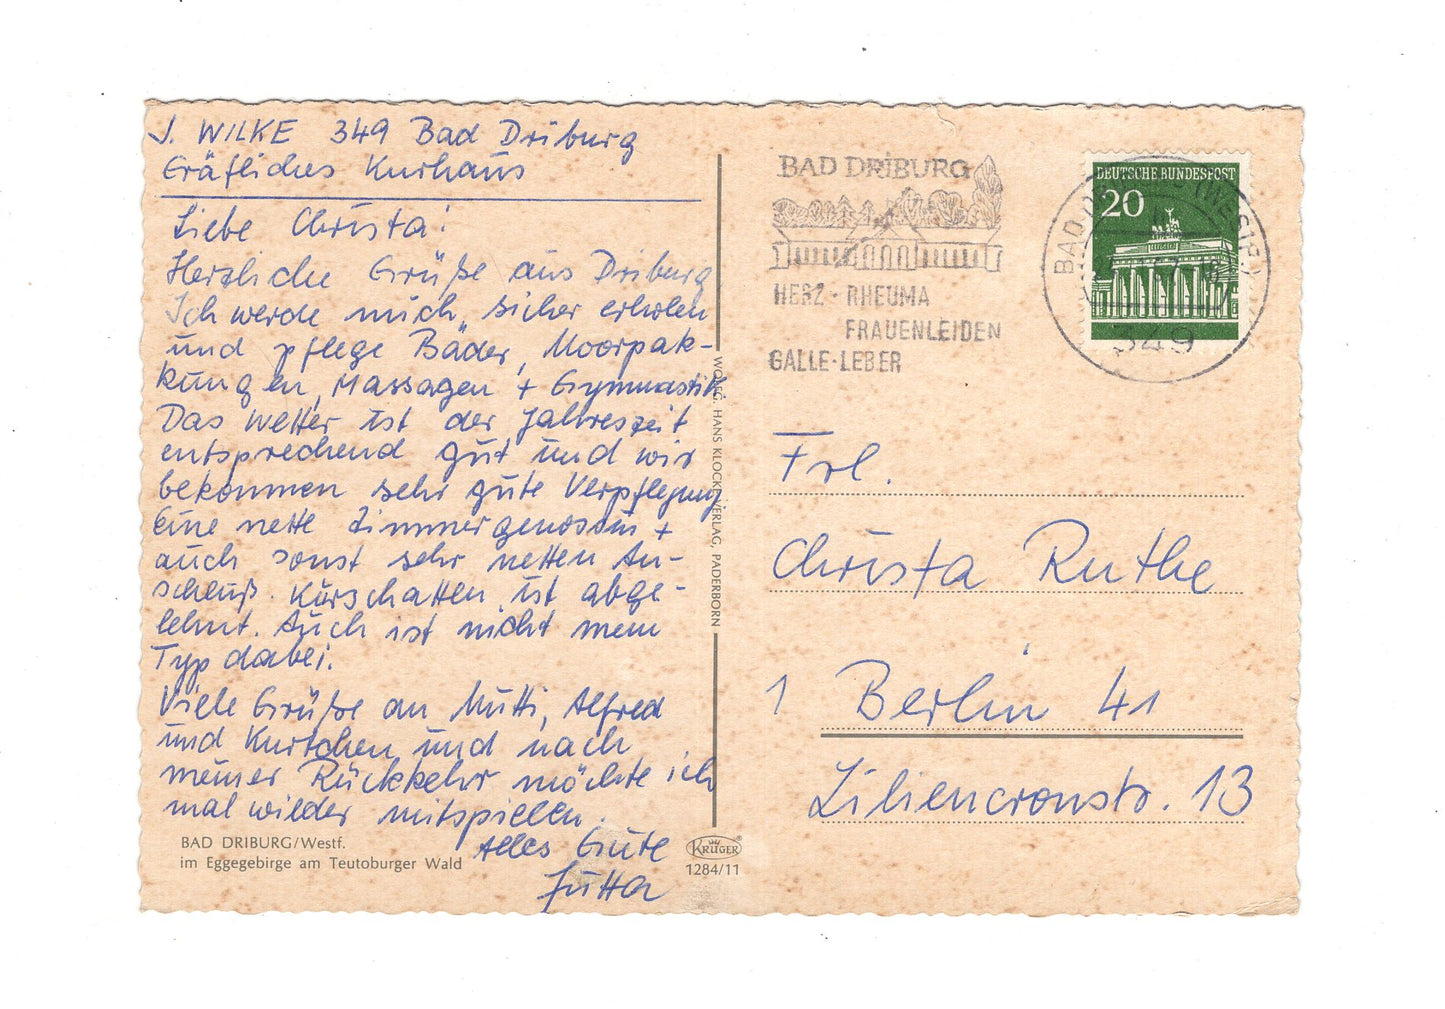 J. WILKE 349 Bad Driburg
Gräfliches Kurhaus
Liebe Christa!
Herzliche Grüße aus Driburg
Ich werde mich sicher erholen
und pflege Bäder, Moorpak-
kungen, Massagen + Gymnastik
Das Wetter ist der Jahreszeit
entsprechend gut und wir
bekommen sehr gute Verpflegung
Eine nette Zimmergenossin +
auch sonst sehr netten An-
schluß. Kurschatten ist abge-
lehnt. Auch ist nicht mein
Typ dabei.
Viele Grüße an Mutti, Alfred
und Kurtchen und nach
meiner Rückkehr möchte ich
mal wieder mitspielen.
Alles Gute
Jutta
BAD DRIBURG/Westf.
im Eggegebirge am Teutoburger Wald
HANS KLOCKE VERLAG, PADERBORN
KRÜGER
1284/11
BAD DRIBURG
HERZ - RHEUMA
FRAUENLEIDEN
GALLE-LEBER
DEUTSCHE BUNDESPOST
20
BAD (WESTF)
349
Frl.
Christa Ruthe
1 Berlin 41
Liliencronstr. 13